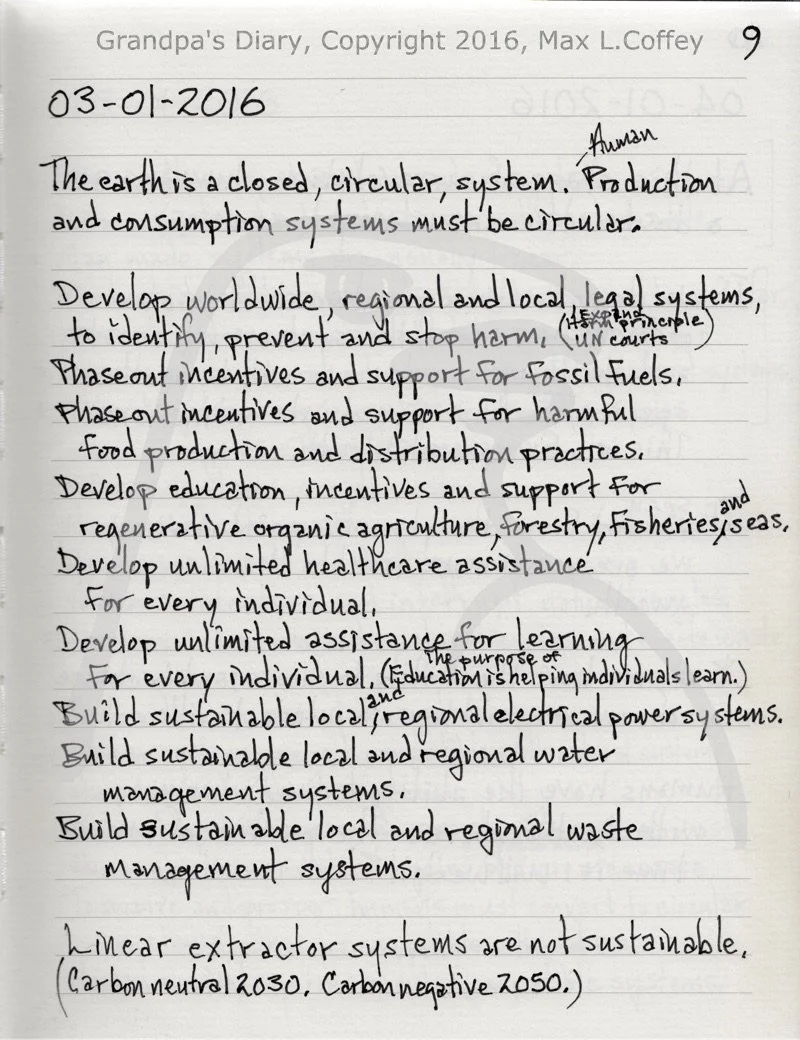 Grandpa's Diary, Copyright 2016, Max L.Coffey
9
03-01-2016
Human
The earth is a closed, circular, system. Production
and consumption systems must be circular.
Develop worldwide, regional and local, legal systems,
to identify, prevent and stop harm. (Expand Harm principle UN courts)
Phaseout incentives and support for fossil fuels.
Phaseout incentives and support for harmful
food production and distribution practices.
Develop education, incentives and support for
regenerative organic agriculture, forestry, fisheries, and seas.
Develop unlimited healthcare assistance
for every individual.
Develop unlimited assistance for learning
for every individual. (The purpose of Education is helping individuals learn.)
Build sustainable local, and regional electrical power systems.
Build sustainable local and regional water
management systems.
Build sustainable local and regional waste
management systems.
Linear extractor systems are not sustainable.
(Carbon neutral 2030. Carbon negative 2050.)